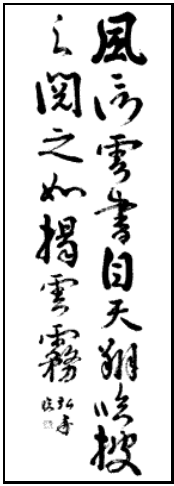 風信雲書自天翔臨披
之閲之如揭雲霧
弘
臨